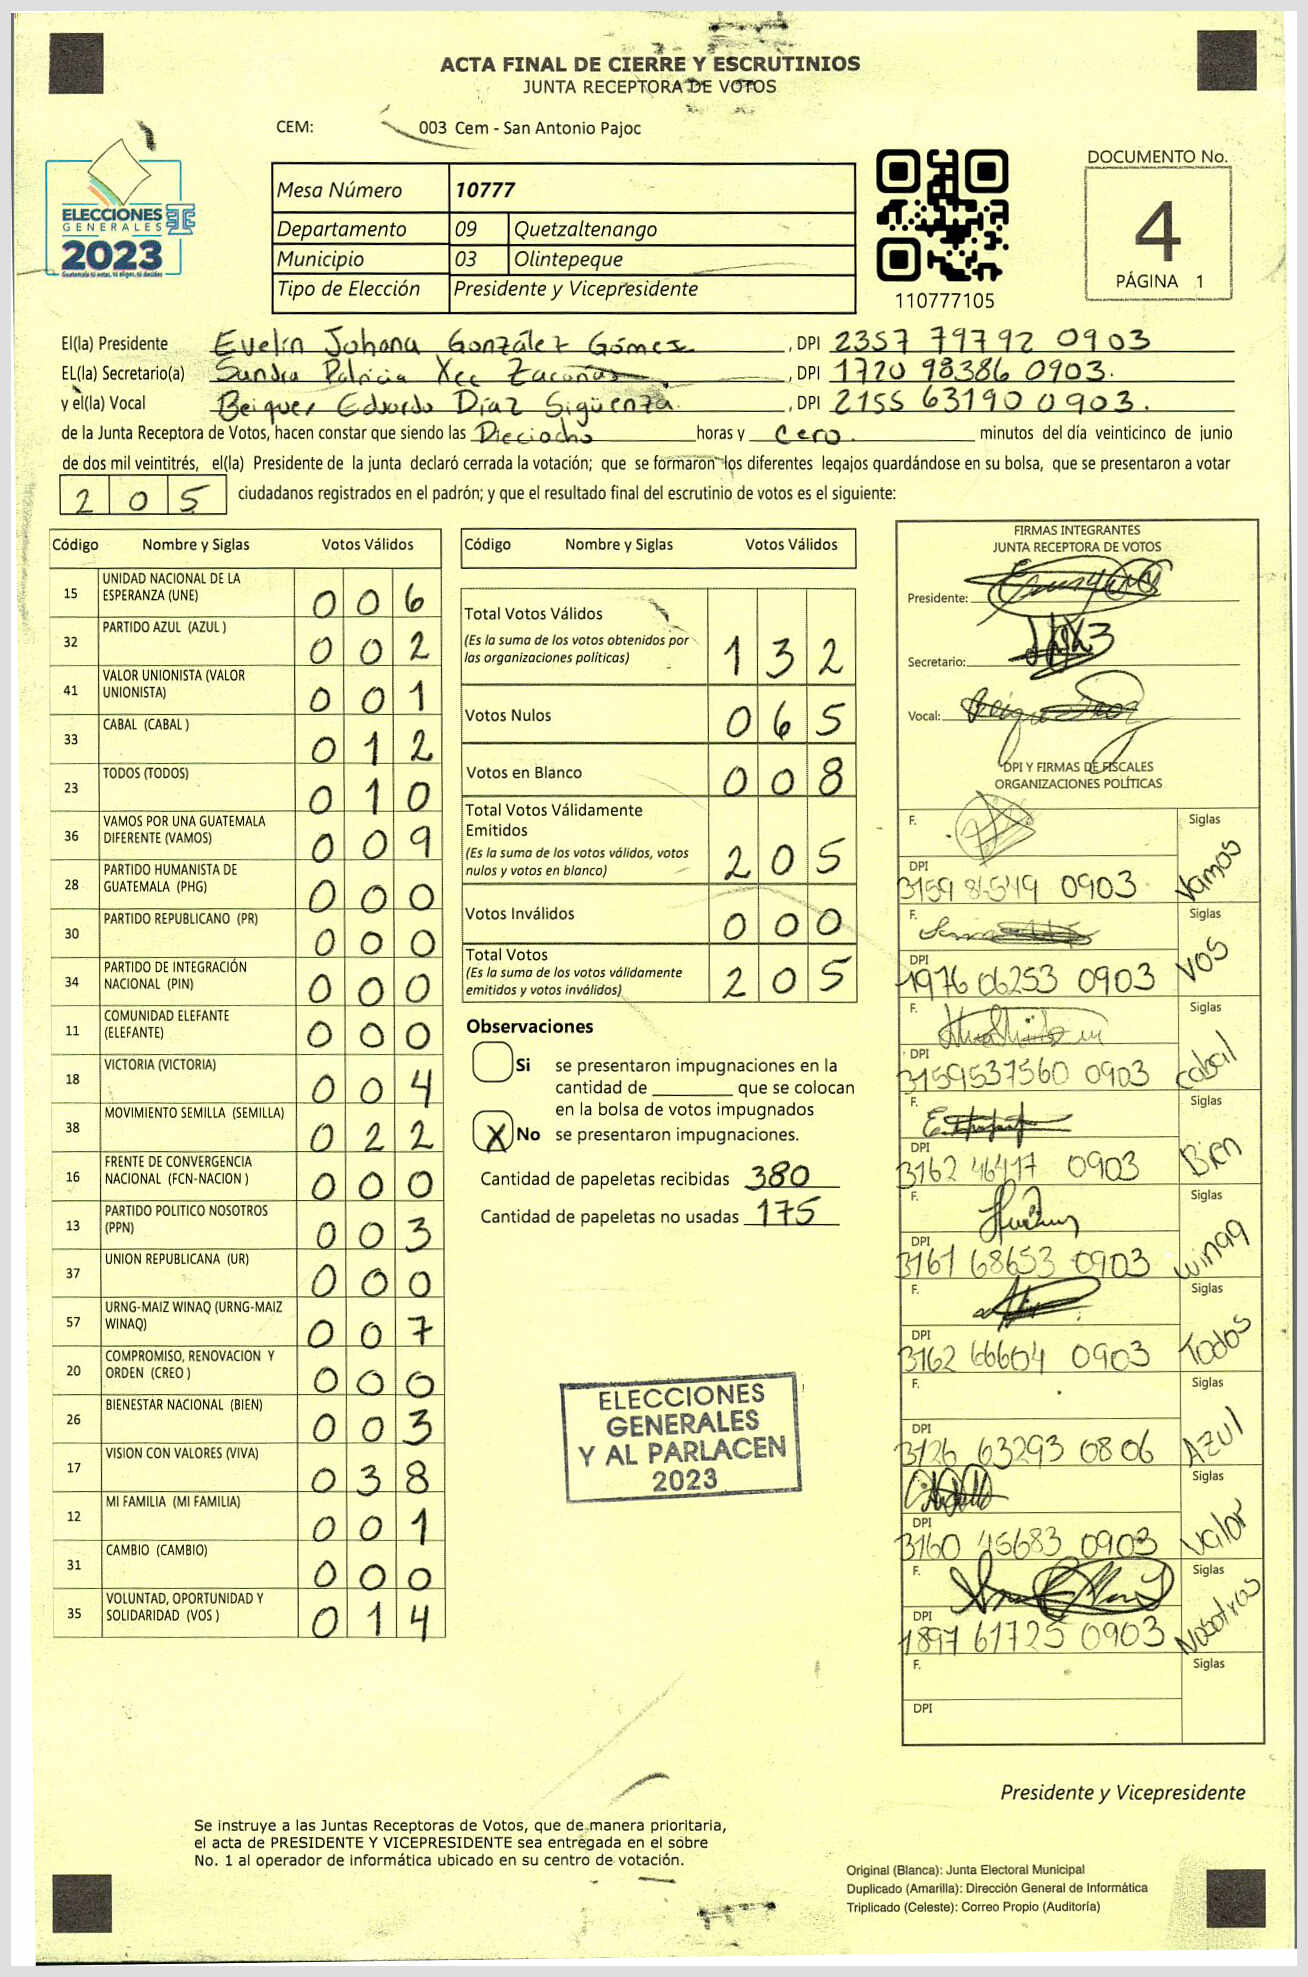 ACTA FINAL DE CIERRE Y ESCRUTINIOS
JUNTA RECEPTORA DE VOTOS
CEM: 003 Cem - San Antonio Pajoc
ELECCIONES
GENERALES
2023
Guatemala tú votas, tú eliges, tú decides
Mesa Número 10777
Departamento 09 Quetzaltenango
Municipio 03 Olintepeque
Tipo de Elección Presidente y Vicepresidente
110777105
DOCUMENTO No.
4
PÁGINA 1
El(la) Presidente Evelin Johana González Gómez , DPI 2357 79792 0903
EL(la) Secretario(a) Sandra Patricia Xec , DPI 1720 98386 0903.
y el(la) Vocal Beiquer Eduardo Díaz Sigüenza. , DPI 2155 63190 0903.
de la Junta Receptora de Votos, hacen constar que siendo las Dieciocho horas y cero. minutos del día veinticinco de junio
de dos mil veintitrés, el(la) Presidente de la junta declaró cerrada la votación; que se formaron los diferentes legajos quardándose en su bolsa, que se presentaron a votar
205 ciudadanos registrados en el padrón; y que el resultado final del escrutinio de votos es el siguiente:
Código Nombre y Siglas Votos Válidos
15 UNIDAD NACIONAL DE LA
ESPERANZA (UNE) 006
32 PARTIDO AZUL (AZUL ) 002
41 VALOR UNIONISTA (VALOR
UNIONISTA) 001
33 CABAL (CABAL ) 012
23 TODOS (TODOS) 010
36 VAMOS POR UNA GUATEMALA
DIFERENTE (VAMOS) 009
28 PARTIDO HUMANISTA DE
GUATEMALA (PHG) 000
30 PARTIDO REPUBLICANO (PR) 000
34 PARTIDO DE INTEGRACIÓN
NACIONAL (PIN) 000
11 COMUNIDAD ELEFANTE
(ELEFANTE) 000
18 VICTORIA (VICTORIA) 004
38 MOVIMIENTO SEMILLA (SEMILLA) 022
16 FRENTE DE CONVERGENCIA
NACIONAL (FCN-NACION ) 000
13 PARTIDO POLITICO NOSOTROS
(PPN) 003
37 UNION REPUBLICANA (UR) 000
57 URNG-MAIZ WINAQ (URNG-MAIZ
WINAQ) 007
20 COMPROMISO, RENOVACION Y
ORDEN (CREO ) 000
26 BIENESTAR NACIONAL (BIEN) 003
17 VISION CON VALORES (VIVA) 038
12 MI FAMILIA (MI FAMILIA) 001
31 CAMBIO (CAMBIO) 000
35 VOLUNTAD, OPORTUNIDAD Y
SOLIDARIDAD (VOS ) 014
Código Nombre y Siglas Votos Válidos
Total Votos Válidos
(Es la suma de los votos obtenidos por
las organizaciones políticas) 132
Votos Nulos 065
Votos en Blanco 008
Total Votos Válidamente
Emitidos
(Es la suma de los votos válidos, votos
nulos y votos en blanco) 205
Votos Inválidos 000
Total Votos
(Es la suma de los votos válidamente
emitidos y votos inválidos) 205
Observaciones
Si se presentaron impugnaciones en la
cantidad de ________ que se colocan
en la bolsa de votos impugnados
X No se presentaron impugnaciones.
Cantidad de papeletas recibidas 380
Cantidad de papeletas no usadas 175
ELECCIONES
GENERALES
Y AL PARLACEN
2023
FIRMAS INTEGRANTES
JUNTA RECEPTORA DE VOTOS
Presidente:
Secretario:
Vocal:
DPI Y FIRMAS DE FISCALES
ORGANIZACIONES POLÍTICAS
F. Siglas Vamos
DPI 3159 86549 0903
F. Siglas VOS
DPI 1976 06253 0903
F. Siglas cabal
DPI 3159537560 0903
F. Siglas Bien
DPI 3162 46417 0903
F. Siglas winaq
DPI 3161 68653 0903
F. Siglas Todos
DPI 3162 66604 0903
F. Siglas AZUl
DPI 3126 63293 0806
Siglas Valor
DPI 3160 45683 0903
F. Siglas Nosotros
DPI 1897 61725 0903
F. Siglas
DPI
Presidente y Vicepresidente
Se instruye a las Juntas Receptoras de Votos, que de manera prioritaria,
el acta de PRESIDENTE Y VICEPRESIDENTE sea entregada en el sobre
No. 1 al operador de informática ubicado en su centro de votación.
Original (Blanca): Junta Electoral Municipal
Duplicado (Amarilla): Dirección General de Informática
Triplicado (Celeste): Correo Propio (Auditoría)